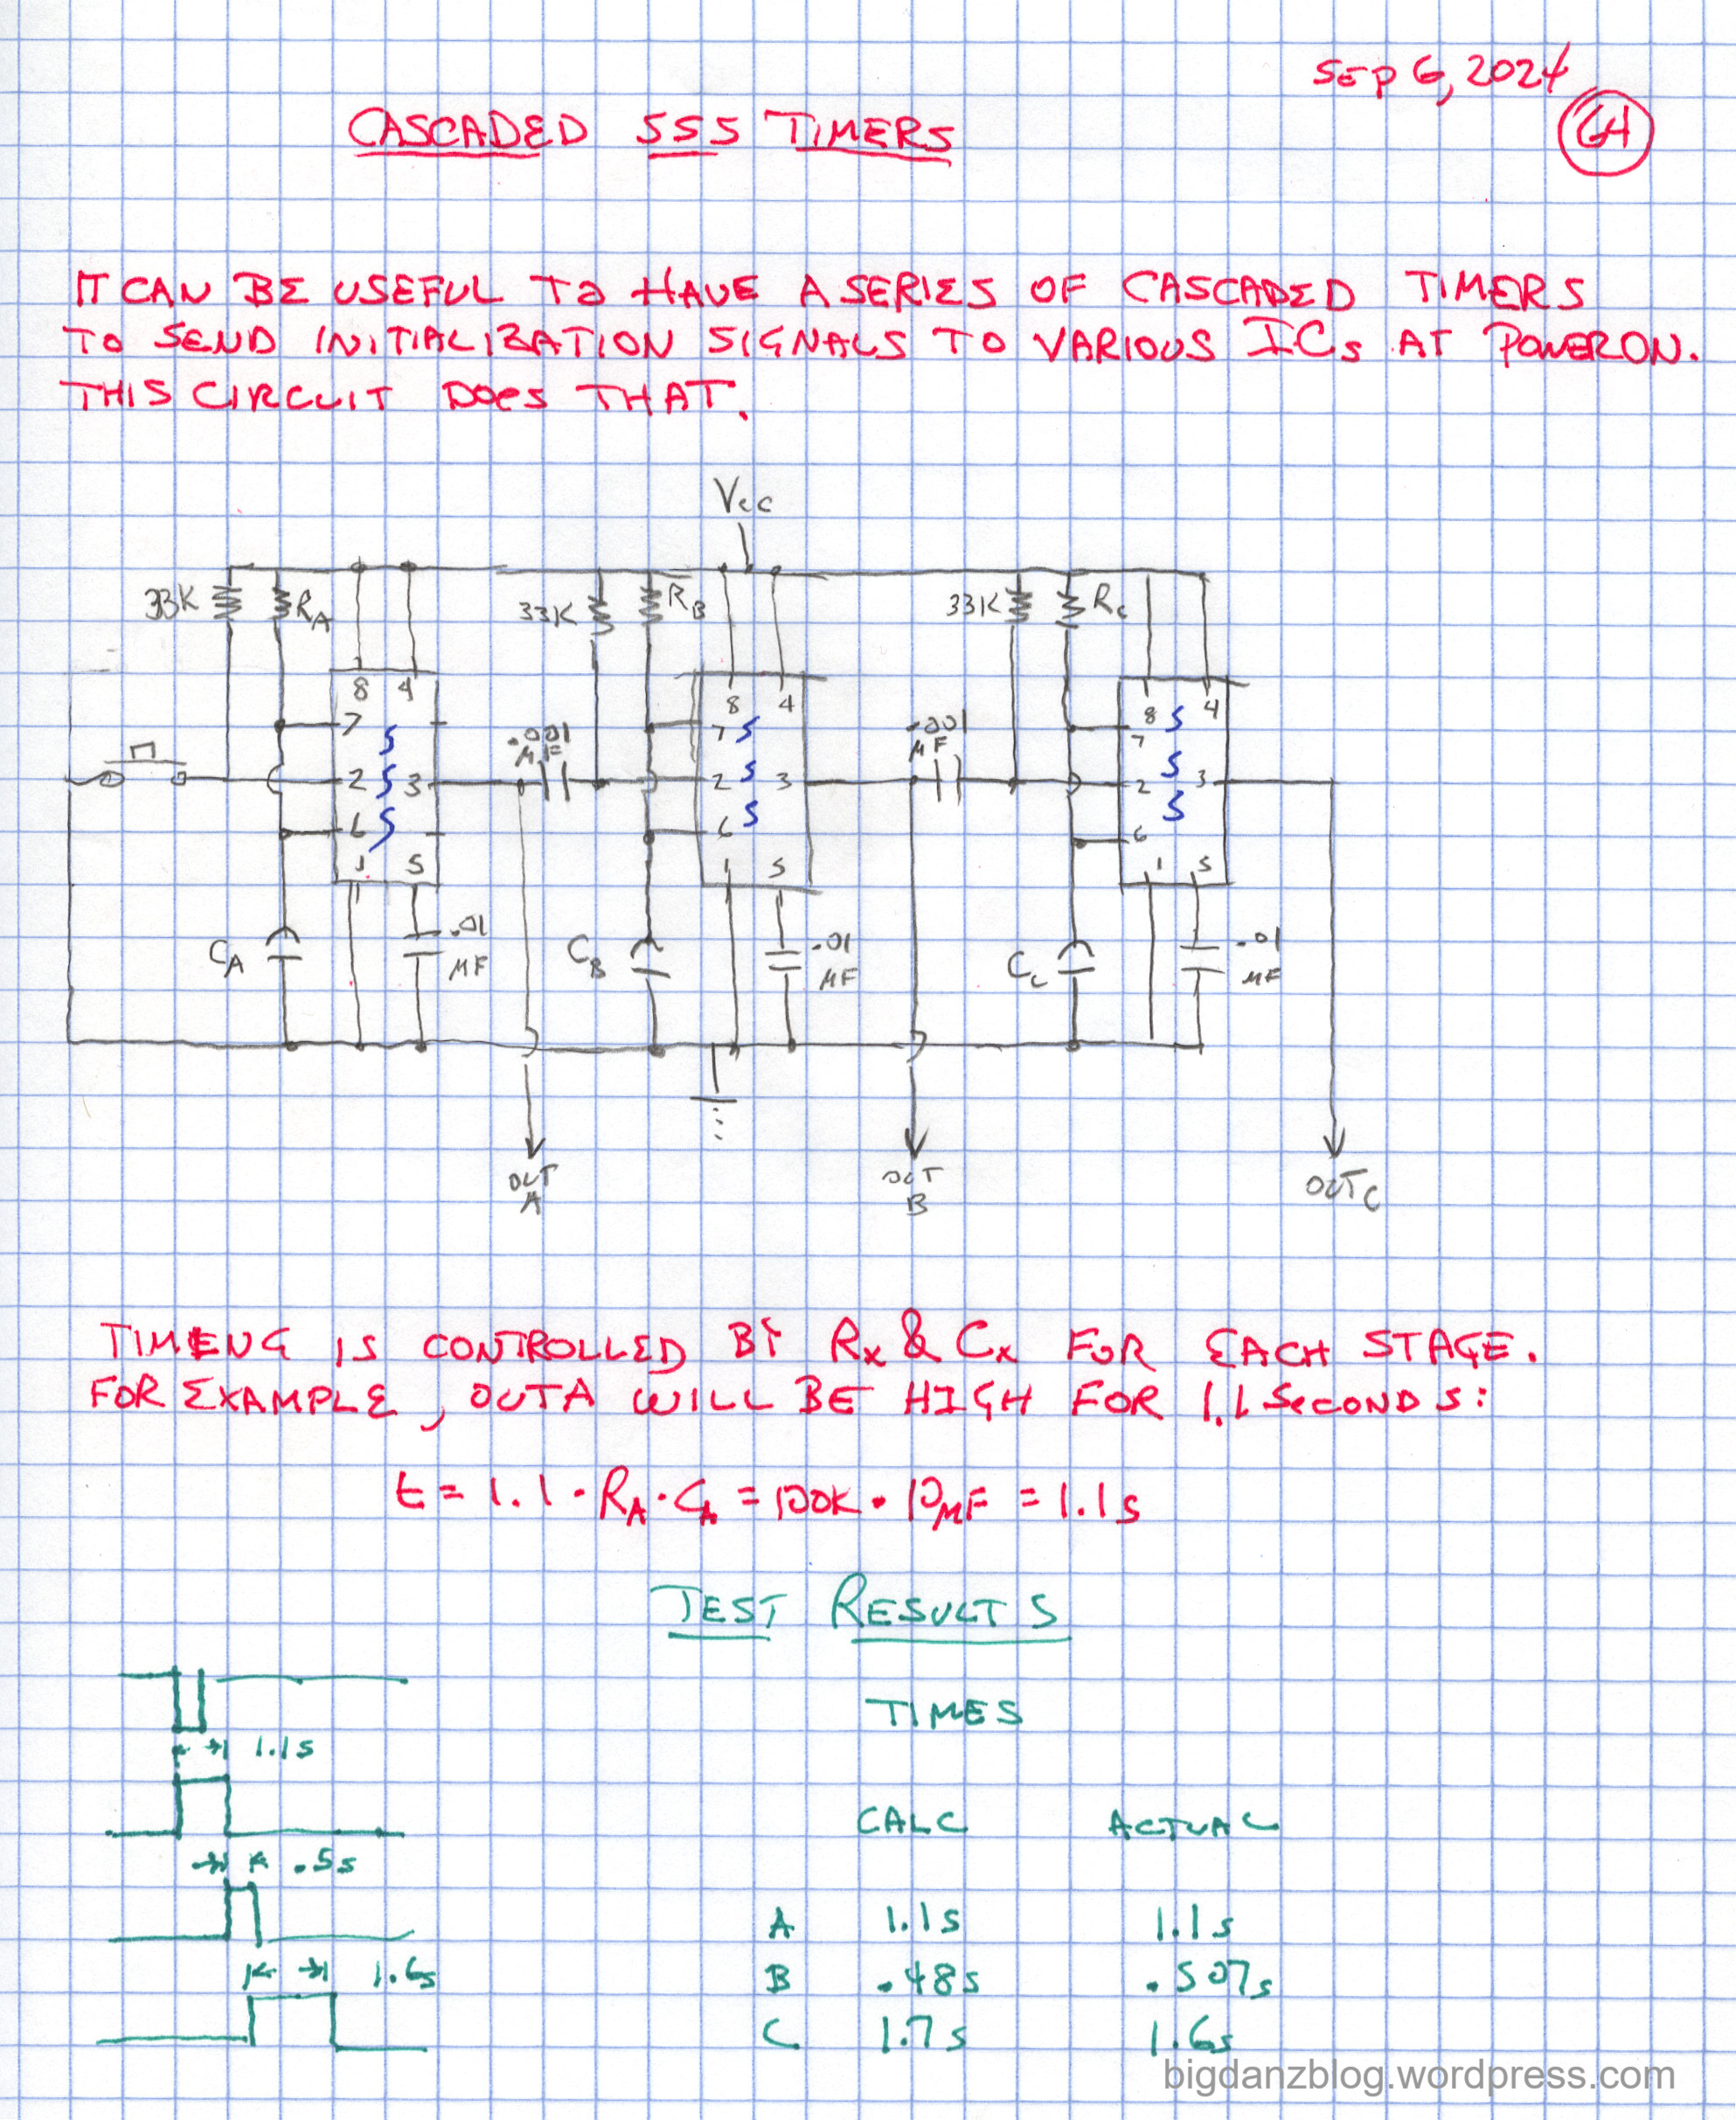 SEP 6, 2024
64
CASCADED 555 TIMERS
IT CAN BE USEFUL TO HAVE A SERIES OF CASCADED TIMERS
TO SEND INITIALIZATION SIGNALS TO VARIOUS ICs AT POWERON.
THIS CIRCUIT DOES THAT.
Vcc
33K RA 33K RB 33K RC
8 4 8 4 8 4
7 7 7
.001 µF .001 µF
2 3 2 3 2 3
555 555 555
6 6 6
1 5 1 5 1 5
CA .01 µF CB .01 µF CC .01 µF
OUT A OUT B OUTC
TIMENG IS CONTROLLED BY Rx & Cx FOR EACH STAGE.
FOR EXAMPLE, OUTA WILL BE HIGH FOR 1.1 SECONDS:
t = 1.1 · RA · CA = 100K · 10µF = 1.1s
TEST RESULTS
TIMES
1.1s
CALC ACTUAL
.5s
A 1.1s 1.1s
1.6s
B .48s .507s
C 1.7s 1.6s
bigdanzblog.wordpress.com